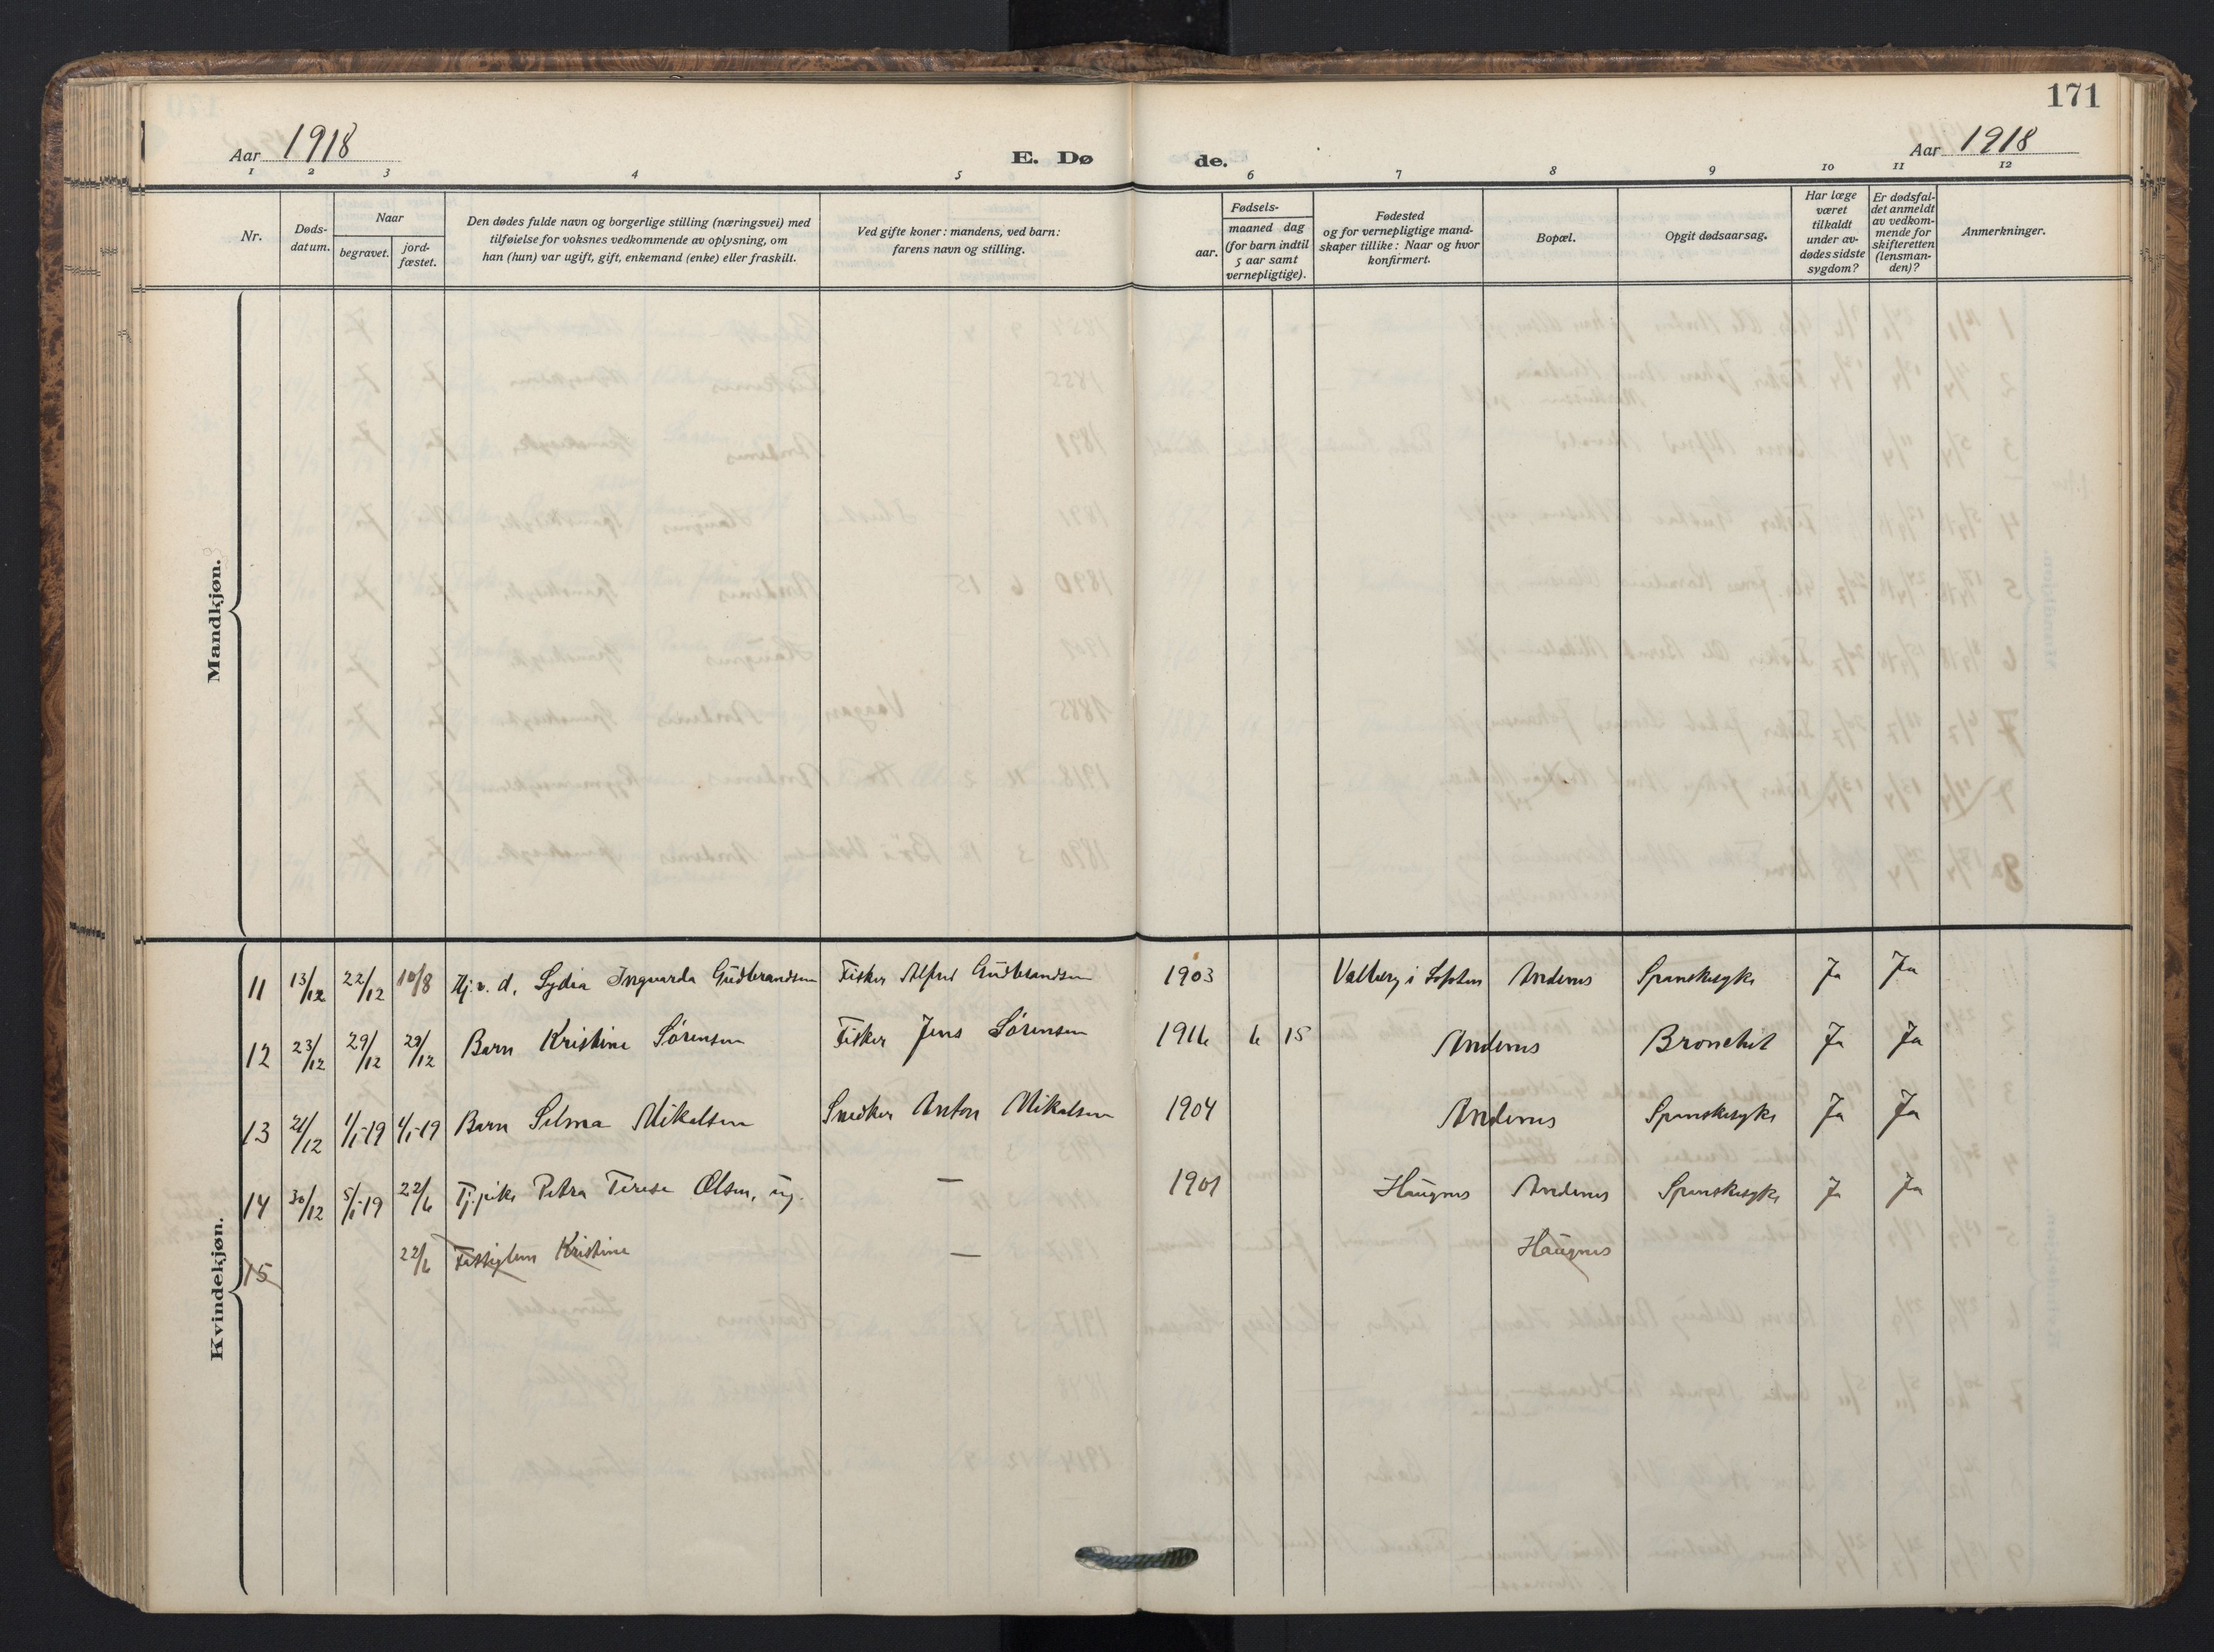 171
Aar 1918
E. Dø
de.
Aar 1918
1 2 3 4 5 6 7 8 9 10 11 12
Nr.
Døds-
datum.
Naar
begravet.
jord-
fæstet.
Den dødes fulde navn og borgerlige stilling (næringsvei) med
tilføielse for voksnes vedkommende av oplysning, om
han (hun) var ugift, gift, enkemand (enke) eller fraskilt.
Ved gifte koner: mandens, ved barn:
farens navn og stilling.
Fødsels-
aar.
maaned dag
(for barn indtil
5 aar samt
vernepligtige).
Fødested
og for vernepligtige mand-
skaper tillike: Naar og hvor
konfirmert.
Bopæl.
Opgit dødsaarsag.
Har læge
været
tilkaldt
under av-
dødes sidste
sygdom?
Er dødsfal-
det anmeldt
av vedkom-
mende for
skifteretten
(lensman-
den)?
Anmerkninger.
Mandkjøn.
Kvindekjøn.
11 13/12 22/12 10/8 Hj.v.d. Lydia Ingvarda Gudbrandsen Fisker Alfred Gudbrandsen 1903 Valberg i Lofoten Andenes Spanskesyke Ja Ja
12 23/12 29/12 29/12 Barn Kristine Sørensen Fisker Jens Sørensen 1916 6 15 Andenes Bronchit Ja Ja
13 21/12 4/1-19 4/1-19 Barn Selma Mikalsen Snedker Anton Mikalsen 1904 Andenes Spanskesyke Ja Ja
14 30/12 5/1-19 22/6 Tj.pike Petra Terese Olsen, ug. — 1901 Haugnes Andenes Spanskesyke Ja Ja
15 22/6 Kristine — Haugnes